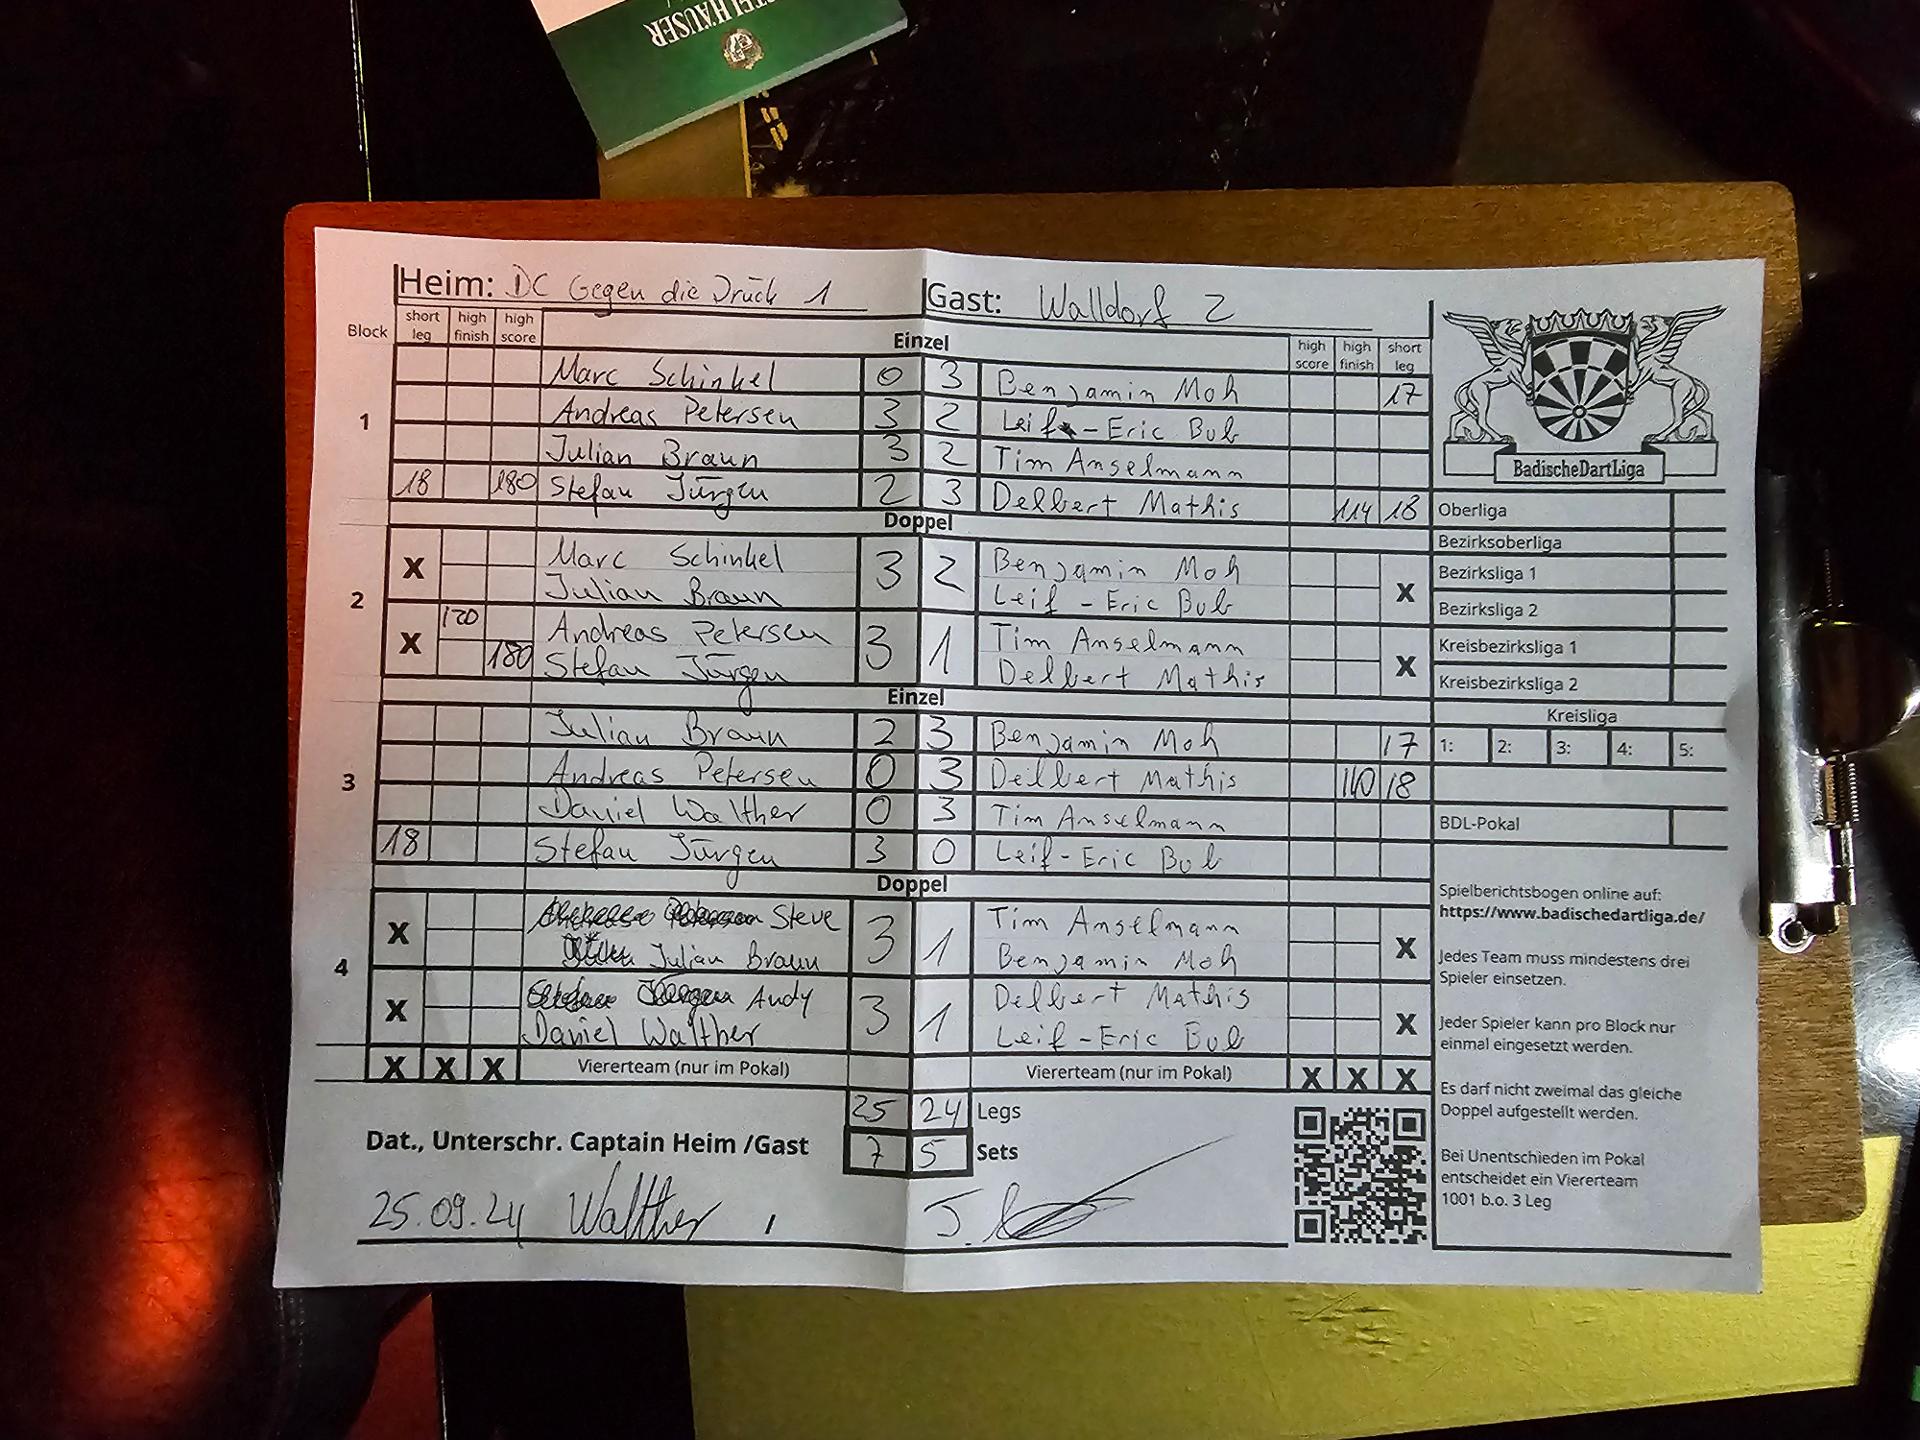 STELHÄUSER
Heim: DC Gegen die Druck 1 Gast: Walldorf 2
Block short leg high finish high score Einzel high score high finish short leg
1
Marc Schinkel 0 3 Benjamin Moh 17
Andreas Petersen 3 2 Leif-Eric Bub
Julian Braun 3 2 Tim Anselmann
18 180 Stefan Jürgen 2 3 Delbert Mathis 114 18
Doppel
2
X Marc Schinkel 3 2 Benjamin Moh X
Julian Braun Leif-Eric Bub
X 170 Andreas Petersen 3 1 Tim Anselmann X
180 Stefan Jürgen Delbert Mathis
Einzel
3
Julian Braun 2 3 Benjamin Moh 17
Andreas Petersen 0 3 Delbert Mathis 140 18
Daniel Walther 0 3 Tim Anselmann
18 Stefan Jürgen 3 0 Leif-Eric Bub
Doppel
4
X Steve 3 1 Tim Anselmann X
Julian Braun Benjamin Moh
X Andy 3 1 Delbert Mathis X
Daniel Walther Leif-Eric Bub
X X X Viererteam (nur im Pokal) Viererteam (nur im Pokal) X X X
25 24 Legs
Dat., Unterschr. Captain Heim /Gast 7 5 Sets
25.09.24 Walther
BadischeDartLiga
Oberliga
Bezirksoberliga
Bezirksliga 1
Bezirksliga 2
Kreisbezirksliga 1
Kreisbezirksliga 2
Kreisliga
1: 2: 3: 4: 5:
BDL-Pokal
Spielberichtsbogen online auf:
https://www.badischedartliga.de/
Jedes Team muss mindestens drei
Spieler einsetzen.
Jeder Spieler kann pro Block nur
einmal eingesetzt werden.
Es darf nicht zweimal das gleiche
Doppel aufgestellt werden.
Bei Unentschieden im Pokal
entscheidet ein Viererteam
1001 b.o. 3 Leg